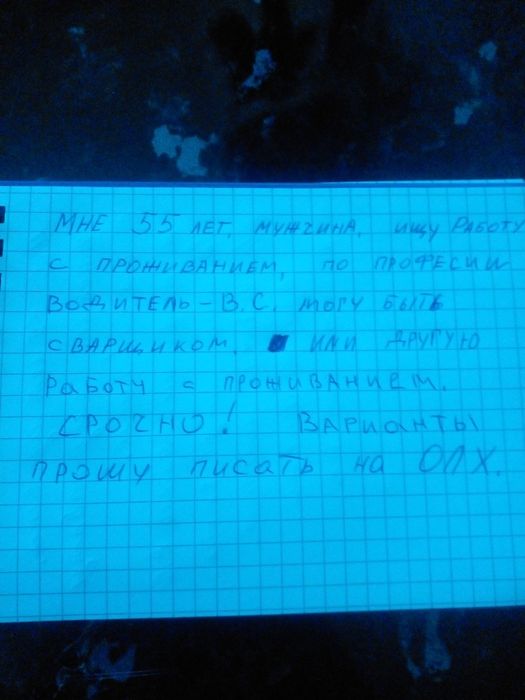 Мне 55 лет, мужчина, ищу работу
с проживанием, по професии
водитель - В.С. могу быть
сварщиком, или другую
работу с проживанием.
Срочно! Варианты
прошу писать на ОЛХ.